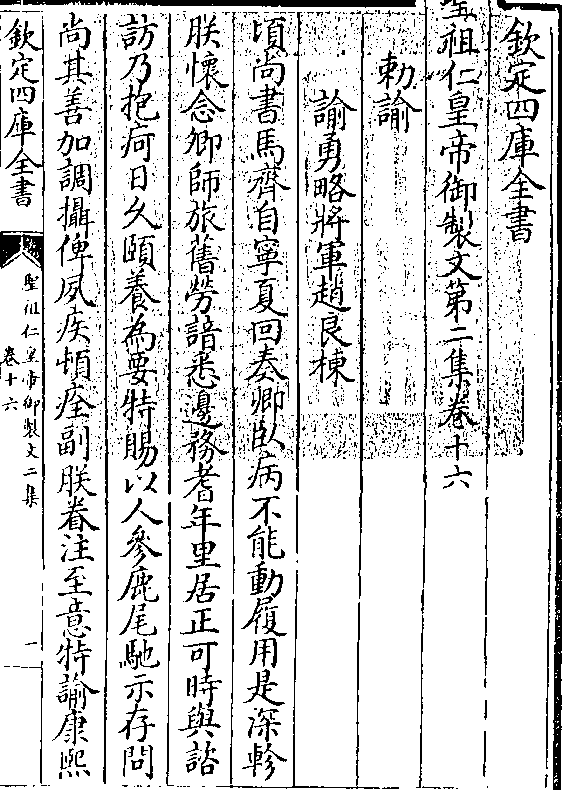 欽定四庫全書
聖祖仁皇帝御製文第二集卷十六
勅諭
諭勇略將軍趙良棟
頃尚書馬齊自寧夏回奏卿臥病不能動履用是深軫
朕懷念卿師旅舊勞諳悉邊務耆年里居正可時與諮
訪乃抱疴日久頤養為要特賜以人參鹿尾馳示存問
尚其善加調攝俾夙疾頓痊副朕眷注至意特諭康熙
欽定四庫全書
聖祖仁皇帝御製文二集
卷十六
一